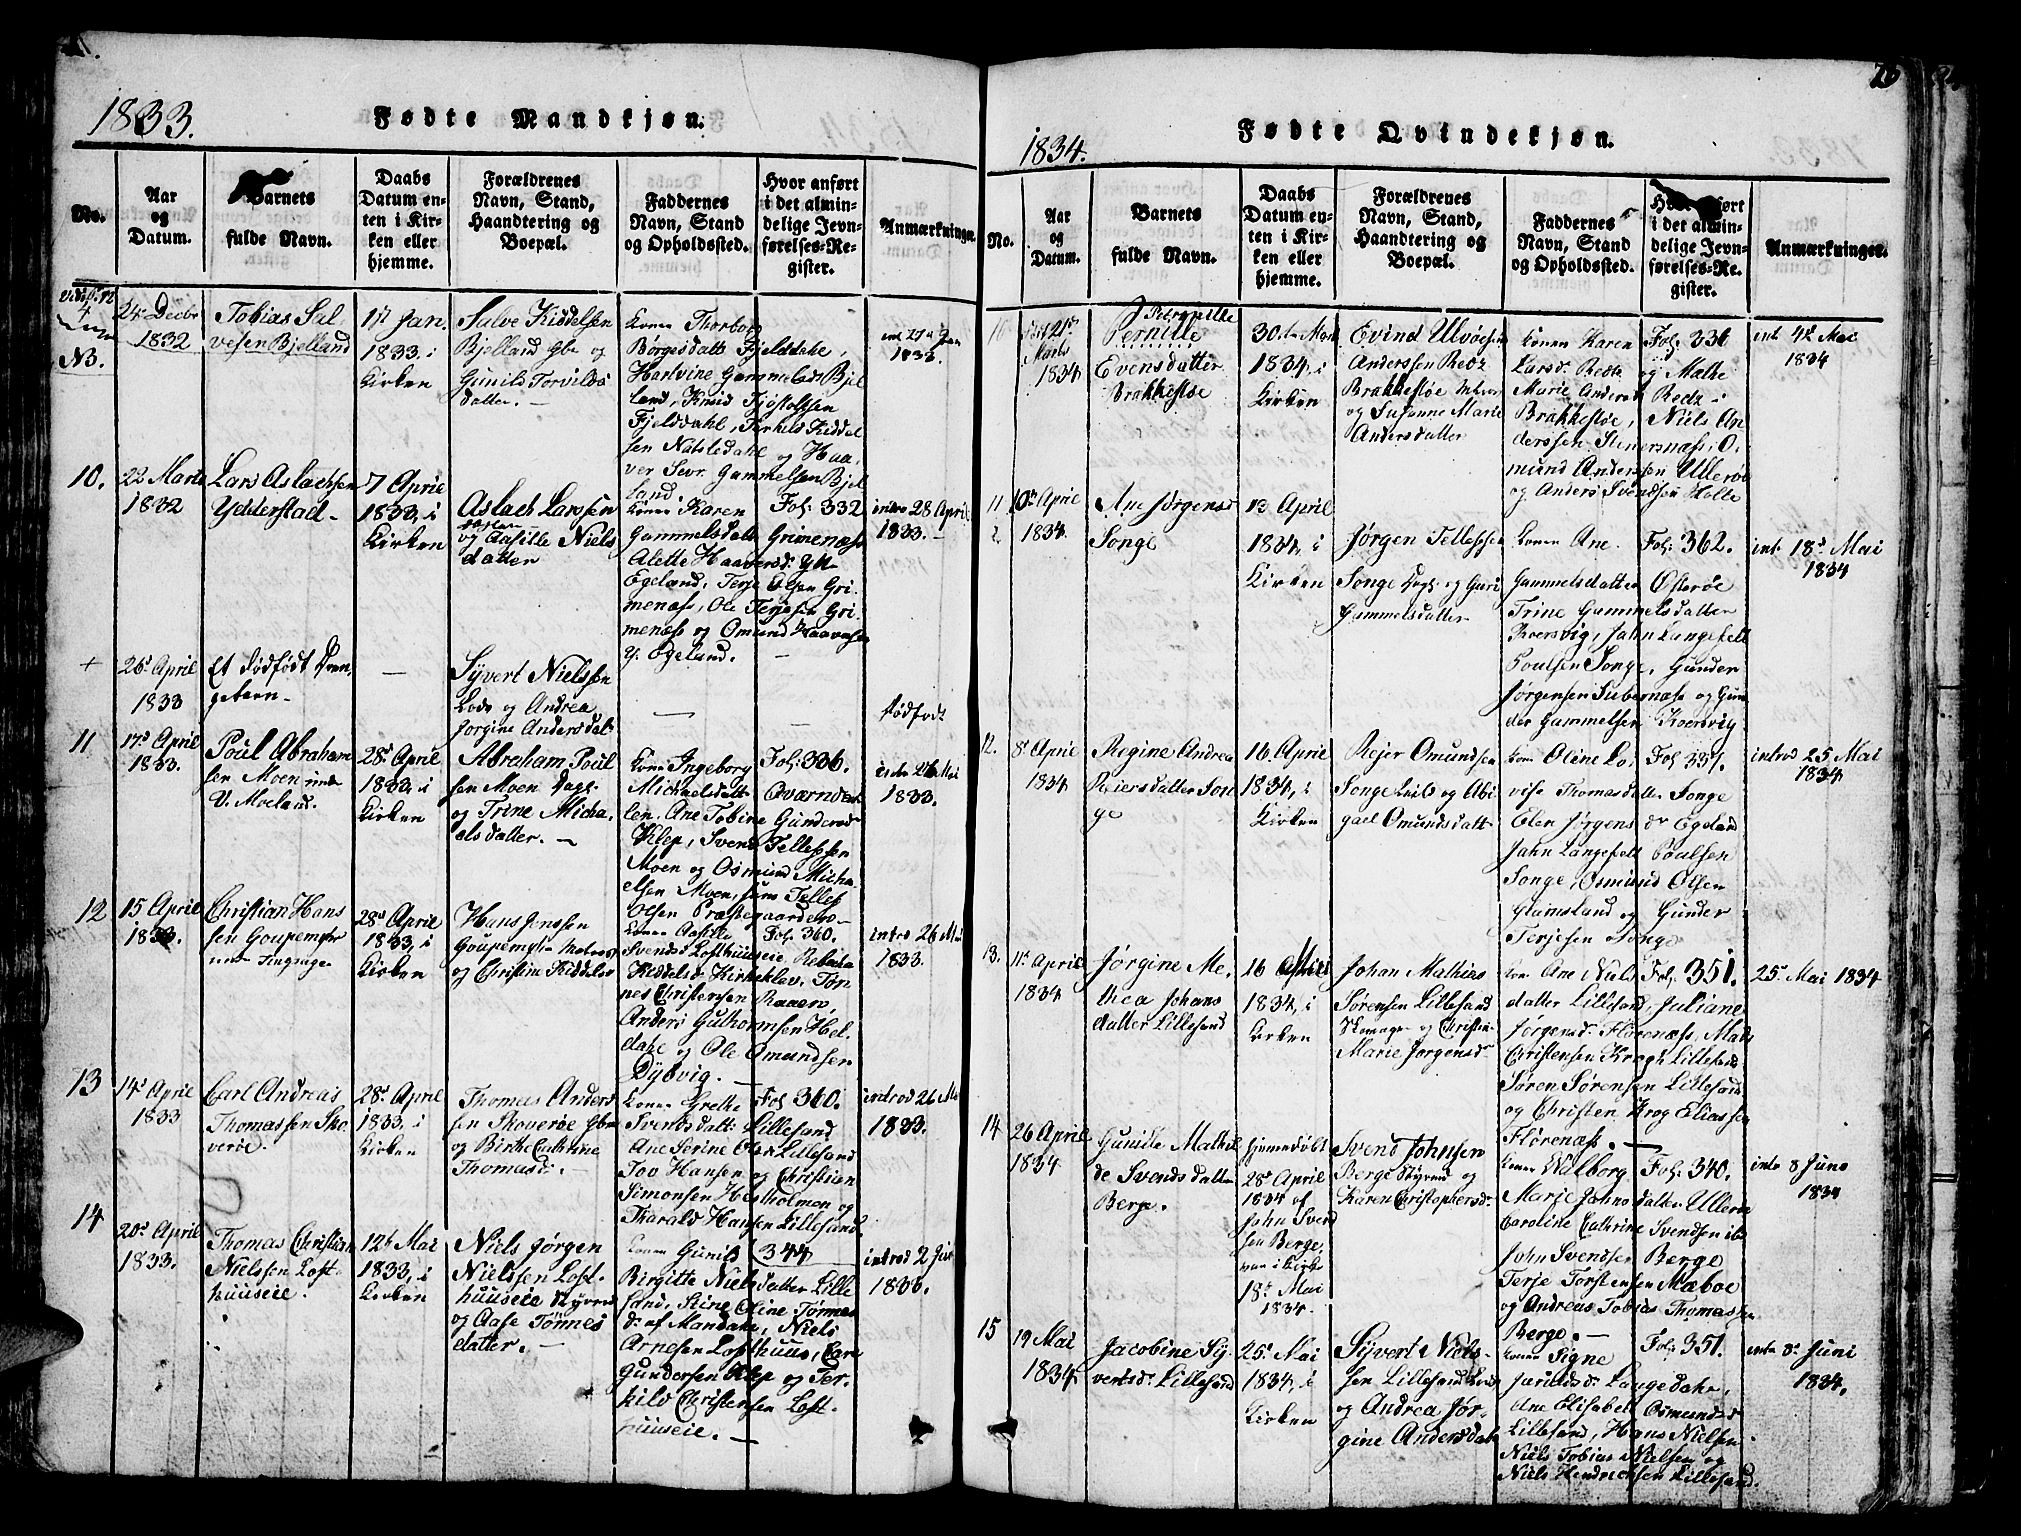 1833.
Fødte Mandkjøn.
No.
Aar
og
Datum.
Barnets
fulde Navn.
Daabs
Datum en-
ten i Kir-
ken eller
hjemme.
Forældrenes
Navn, Stand,
Haandtering og
Boepæl.
Faddernes
Navn, Stand
og Opholdssted.
Hvor anført
i det almin-
delige Jevn-
førelses-Re-
gister.
Anmærkninger.
4
NB.
24 Decbr
1832
Tobias Sal
vesen Bjelland
17 Jan.
1833. i
Kirken
Salve Kiddelsen
Bjelland Gbr og
Gunild Torvilds
datter. -
Konen Thorborg
Børgesdatt Fjelddahl,
Hartvine Gammelsd. Bjel
land, Knud Fjøstolfsen
Fjelddahl, Terkel Kiddel
sen Natsledahl og Haa
ver Sevr. Gammelsen Bjel
land.
27 Jan
1833.
10.
22 Marts
1832
Lars Aslachsen
Ydderstad-
7 April
1833, i
Kirken
Aslach Larssen
og Aasille Niels
datter
Konen Karen
Gammelsdatt Grimenæss
Alette Haaversd. Ytt
Egeland, Terje Olsen Gri-
menæss, Ole Terjesen Gri-
menæss og Omund Haavorsen
Y. Egeland. -
Fol: 332
introd 28 April
1833. -
+
26 April
1833
Et dødfødt Dren
gebarn-
-
Syvert Nielsen
Lods og Andrea
Jorgine Andersdat
-
-
dødfødt
11
17d April
1833.
Poul Abraham
sen Moen under
V. Moeland.
28d April
1833, i
Kirken
Abraham Poul
sen Moen Dagl.
og Trine Micha
elsdatter. -
Konen Ingeborg
Michaelsdatt Qværndal
len. Ane Tobine Gundersd
Klep, Svend Tellefsen
Moen og Osmund Micha-
elsen Moen, sam Tellef
Olsen Præstegaarden
Fol: 336.
introd 26 Mai
1833.
12
15 April
1833.
Christian Hans
sen Goupemyr
28d April
1833, i
Kirken
Hans Jenssen
Goupemyr Matros
og Christine Kiddelsd
Konen Aasille
Svendsd Lofthuuseie, Rebecka
Kiddelsd. Kirkeklev, Tøn
nes Christensen Kaaerø,
Anders Guthormsen Hel
dahl og Ole Omundsen
Dybvig. -
Fol: 360.
introd 26 Mai
1833.
13
14d April
1833
Carl Andreas
Thomassen Sko
verøe.
28d April
1833, i
Kirken
Thomas Anders
sen Skoverøe Gbr
og Birthe Cathrine
Thomasd. -
Konen Grethe
Svendsdatt. Lillesand
Ane Serine Olsen Lillesand
Jov Hansen og Christian
Simonsen Hestholmen og
Tharald Hansen Lillesand
Fol 360.
introd 26 Mai
1833.
14
20d April
1833.
Thomas Christian
Nielssen Loft
huuseie.
12t Mai
1833, i
Kirken
Niels Jørgen
Nielssen Loft
huuseie Styrm
og Aase Tønnes
datter. -
Konen Gunild
Birgitte Nielsdatter Lille
sand, Stine Oline Tønnes
d. af Mandahl, Niels
Arnesen Lofthuus, Carl
Gundersen Klep og Ter-
kild Christensen Loft-
huuseie. -
344
introd 2 Juni
1833.
76
1834.
Fødte Qvindekjøn.
No.
Aar
og
Datum.
Barnets
fulde Navn.
Daabs
Datum en-
ten i Kir-
ken eller
hjemme.
Forældrenes
Navn, Stand,
Haandtering og
Boepæl.
Faddernes
Navn, Stand
og Opholdssted.
Hvor anført
i det almin-
delige Jevn-
førelses-Re-
gister.
Anmærkninger.
10
21
Marts
1834
Pernille
Pernille
Evensdatter
Brakkestøe
30 Marts
1834, i
Kirken
Evind Ulvøesen
Anderssen Redz
Brakkestøe
og Susanne Marie
Andersdatter
Konen Karen
Larsd. Redte og Malhe
Marie Andersd. Redz i
Brakkestøe, Niels An
derssen Steenersnæss, O
mund Andersen Ullerøe
og Anders Svendsen Holte
Fol: 336
int. 4d Mai
1834
11
10d April
1834.
Ane Jørgensd
Songe
13 April
1834, i
Kirken
Jørgen Tellefsen
Songe Dagl. og Guri
Gammelsdatter
Konen Ane
Gammelsdatter Østerøe
Trine Gammelsdatter
Koersvig, Jahn Langefeldt
Poulsen Songe, Gunder
Jørgensen Tubernæss og Gun
der Gammelsen Koersvig
Fol: 362.
int. 18d Mai
1834
12.
8d April
1834
Regine Andrea
Reiersdatter Son
ge
16. April
1834, i
Kirken
Rejer Omundsen
Songe Leil. og Abi
gael Omundsdatt
Konen Oline Lo
vise Thomasdatter Songe
Elen Jørgensdr Egeland
Jahn Langefelt Poulsen
Songe, Osmund Olsen
Glamsland og Gunder
Terjesen Songe
Fol: 337.
introd 25 Mai
1834
13.
11d April
1834
Jørgine Me-
thea Johans
datter Lillesand
16 April
1834, i
Kirken
Johan Mathias
Sørensen Lillesand
Skomager og Christen
Marie Jørgensd
Konen Ane Niels
datter Lillesand, Juliane
Jørgensd. Flørenæss, Mads
Christensen Krogh Lillesand
Søren Sørensen Lillesand
og Christen Krog Eliassen
Flørenæss. -
Fol: 351.
25d Mai 1834
14
26 April
1834
Gunille Mathil
de Svendsdatter
Berge.
Hjemmedøbt
28d April
1834 af
John Svend
sen Berge,
var i Kirke
18d Mai
1834.
Svend Johnsen
Berge Styrmd og
Karen Christophersd.
Konen Walborg
Marie Johnsdatter Ullerøe
Caroline Cathrine Svendsen ib.
John Svendsen Berge
Terje Torstensen Maboe
og Andreas Tobias Thomassen
Berge. -
Fol: 340.
intr 8 Juni
1834
15
19 Mai
1834
Jacobine Sy
vertsd. Lillesand
25d Mai
1834, i
Kirken
Syvert Niels-
sen Lillesand Lods
og Andrea Jør-
gine Andersdatt
Konen Signe
Jaruldsd. Langedahl,
Ane Elisabet Osmundsd
Lillesand, Hans Nielsen
Niels Tobias Nielsen og
Niels Hendrichsen Lillesand.
Fol: 351.
intr 8d Juni
1834.